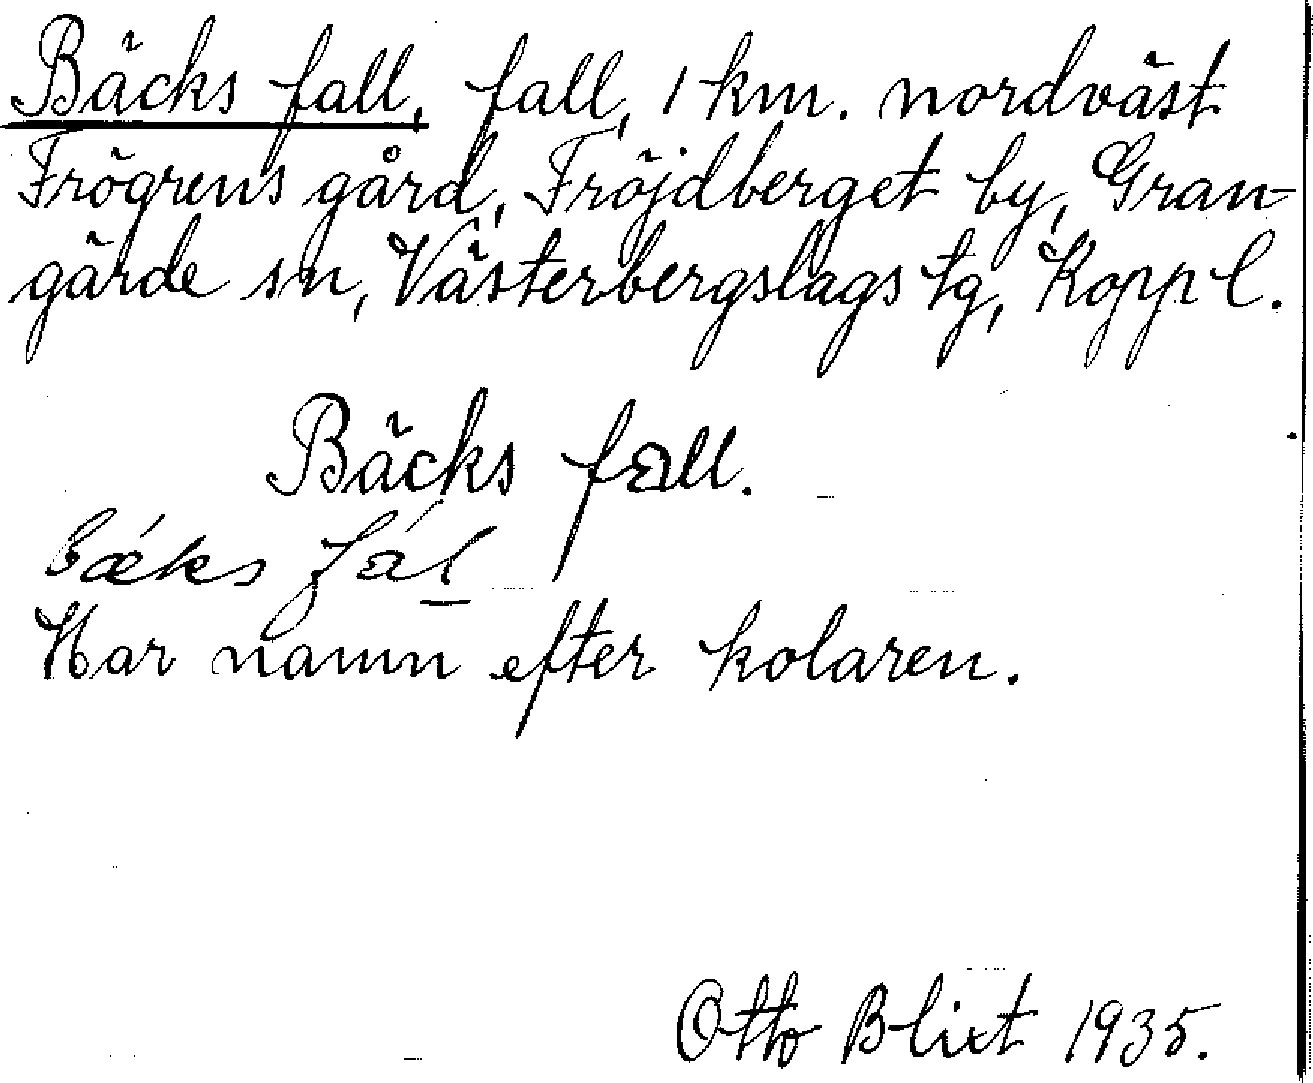 Bäcks fall, fall, 1 km. nordväst
Frögrens gård, Fröjdberget by, Gran-
gärde sn, Västerbergslags tg, Kopp l.
Bäcks fall.
bǽks fál
Har namn efter kolaren.
Otto Blixt 1935.